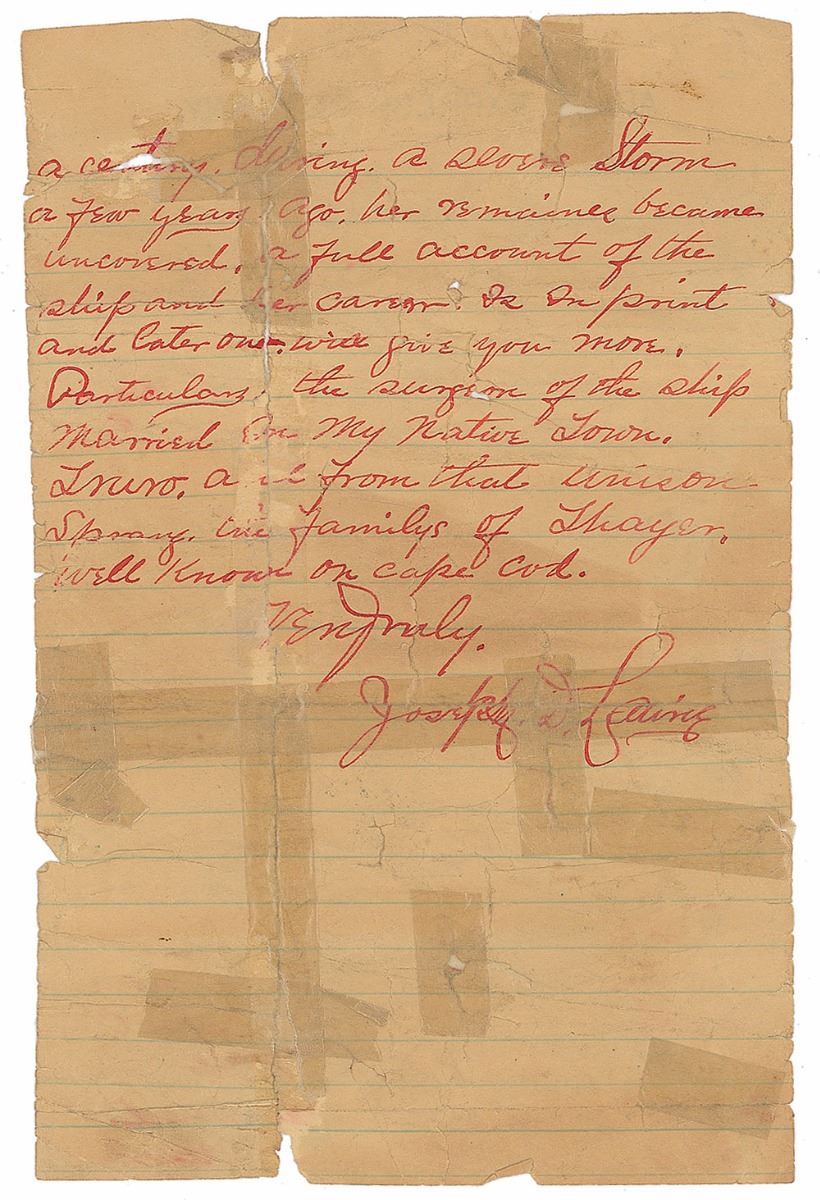 a century. during. a severe Storm
a few years ago. her remaines became
uncovered. a full account of the
ship and her career. Is In print
and later one. will give you more.
Particulars. the surgeon of the ship
Married in My Native Town.
Truro. and from that Unison
Sprang. the familys of Thayer.
well Known on cape Cod.
Very Truly.
Joseph. D.